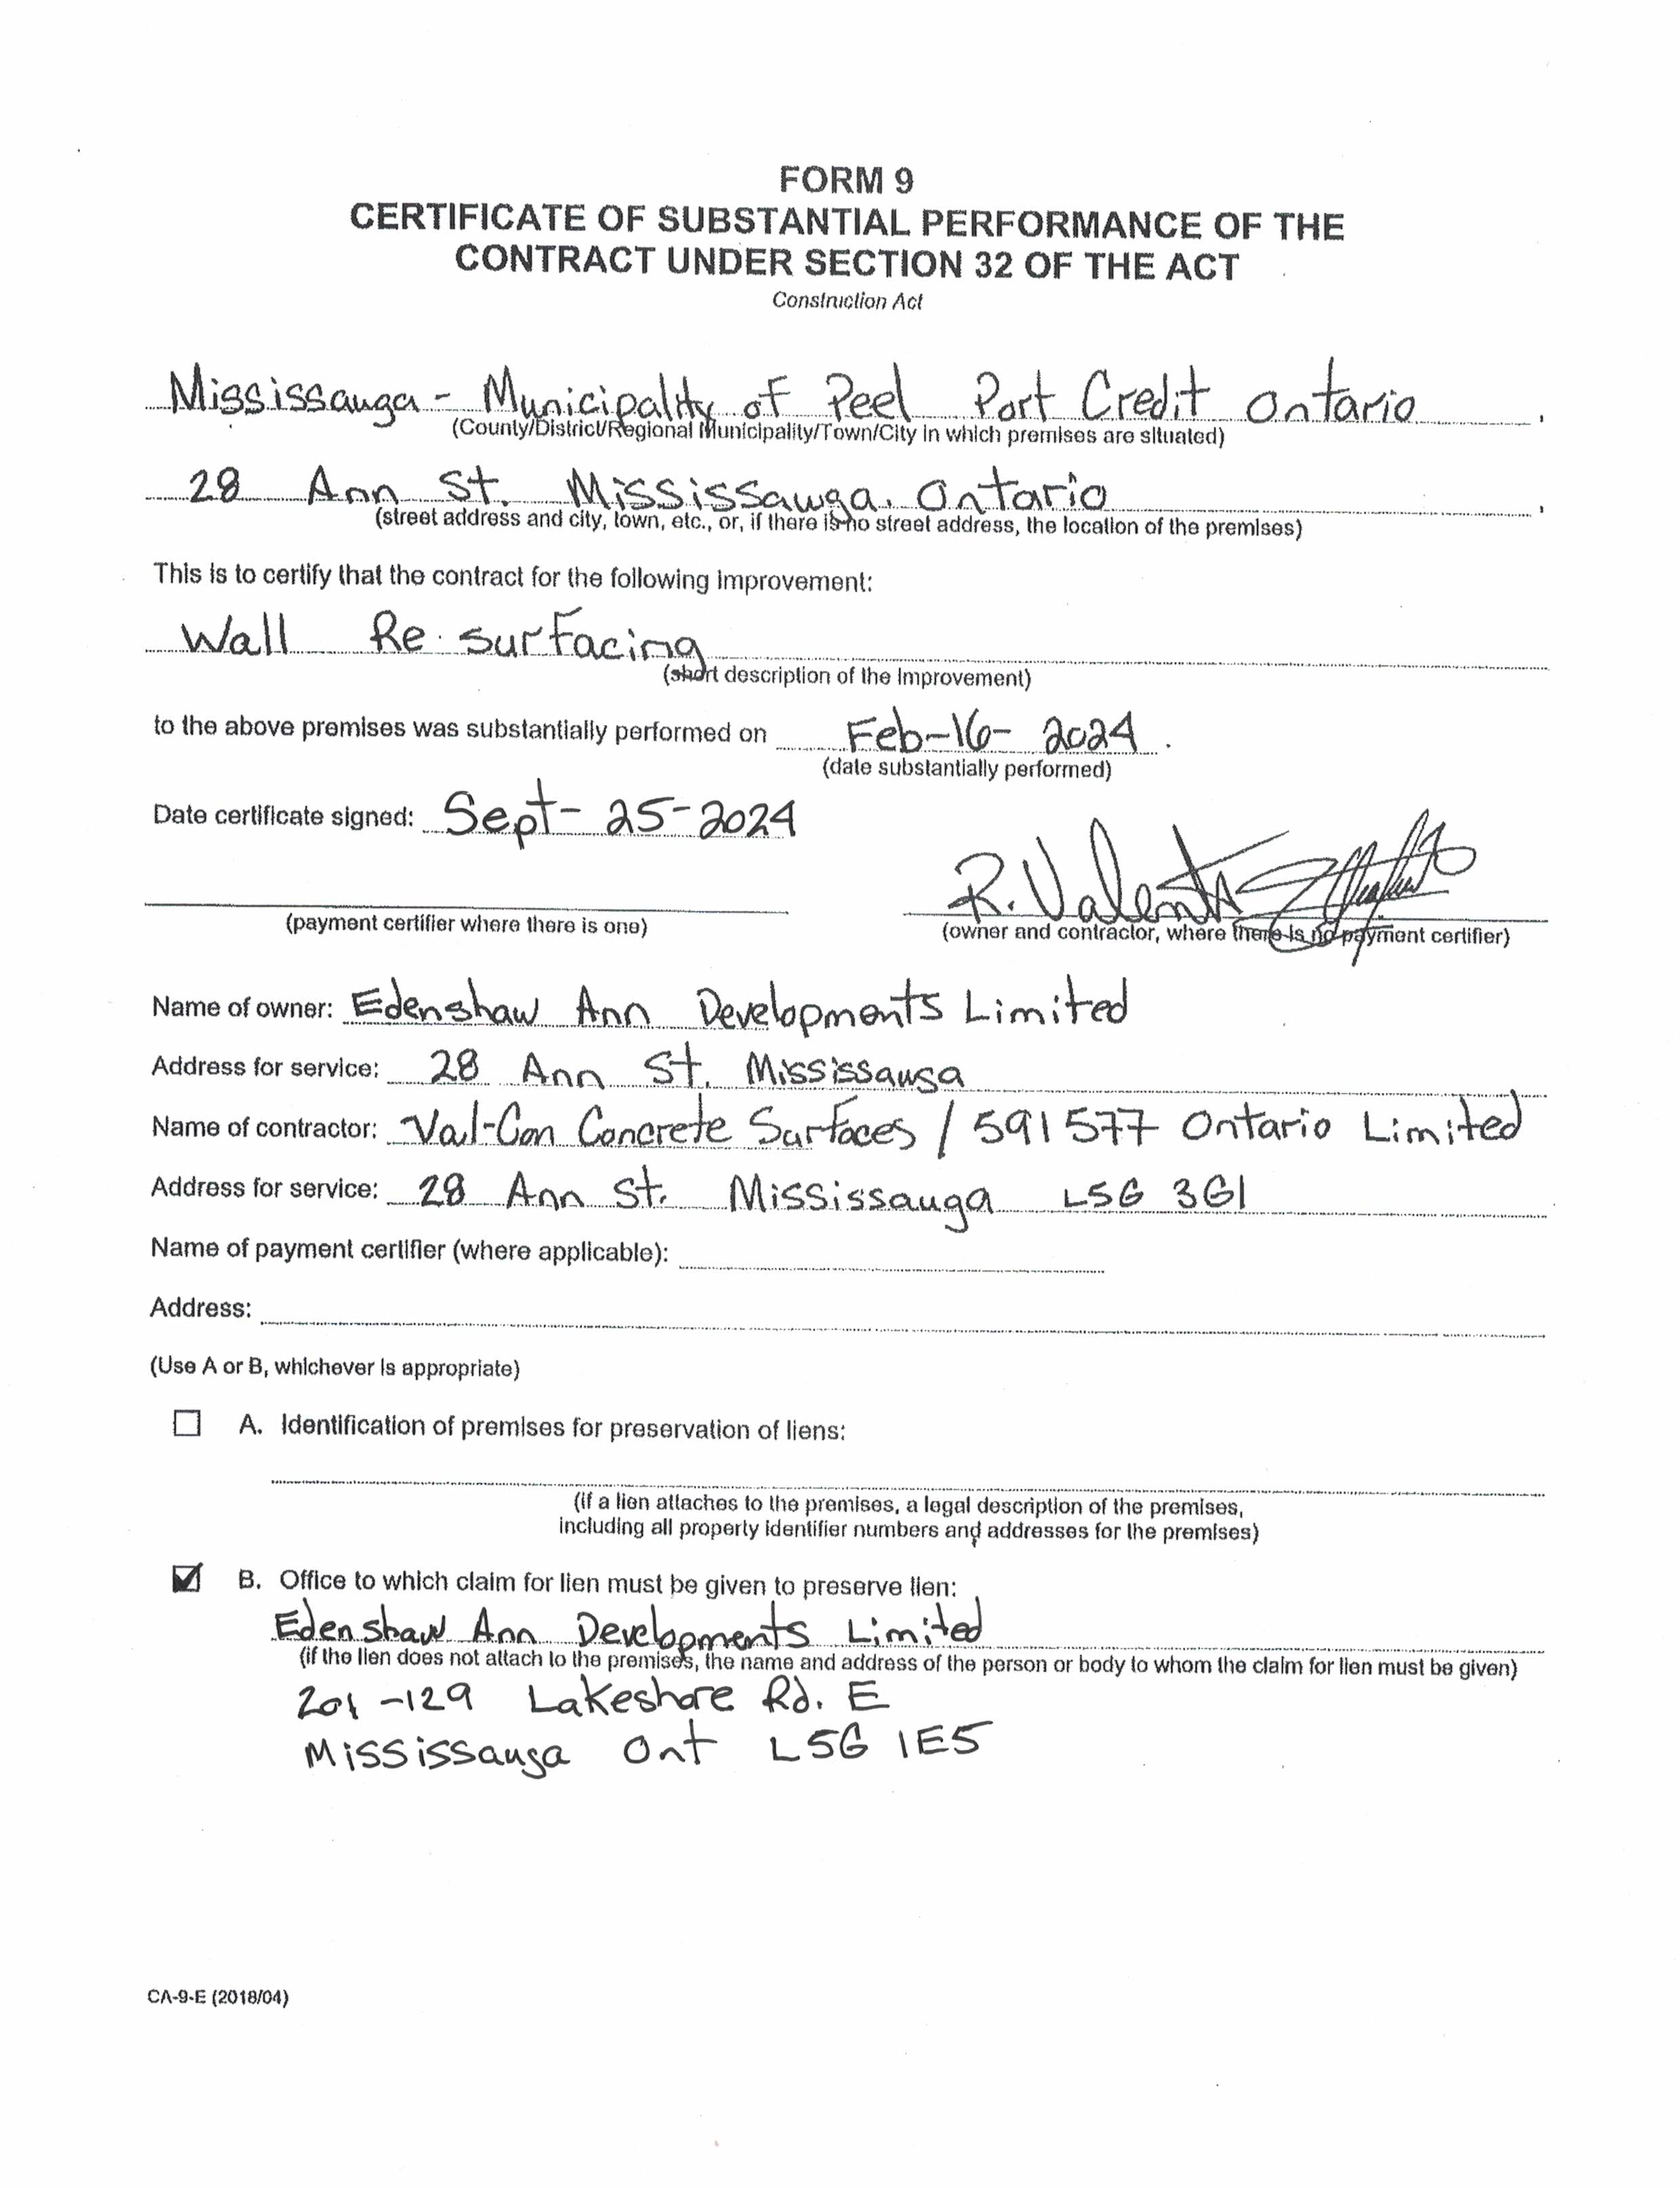 FORM 9
CERTIFICATE OF SUBSTANTIAL PERFORMANCE OF THE
CONTRACT UNDER SECTION 32 OF THE ACT
Construction Act
Mississauga - Municipality of Peel Port Credit Ontario,
(County/District/Regional Municipality/Town/City in which premises are situated)
28 Ann St. Mississauga. Ontario,
(street address and city, town, etc., or, if there is no street address, the location of the premises)
This is to certify that the contract for the following improvement:
Wall Re. surfacing
(short description of the improvement)
to the above premises was substantially performed on Feb-16-2024.
(date substantially performed)
Date certificate signed: Sept-25-2024
R. Valent
(payment certifier where there is one) (owner and contractor, where there is no payment certifier)
Name of owner: Edenshaw Ann Developments Limited
Address for service: 28 Ann St. Mississausa
Name of contractor: Val-Con Concrete Surfaces / 591577 Ontario Limited
Address for service: 28 Ann St. Mississauga L5G 3G1
Name of payment certifier (where applicable):
Address:
(Use A or B, whichever is appropriate)
A. Identification of premises for preservation of liens:
(if a lien attaches to the premises, a legal description of the premises,
including all property identifier numbers and addresses for the premises)
B. Office to which claim for lien must be given to preserve lien:
Edenshaw Ann Developments Limited
(if the lien does not attach to the premises, the name and address of the person or body to whom the claim for lien must be given)
201-129 Lakeshore Rd. E
Mississauga Ont L5G 1E5
CA-9-E (2018/04)